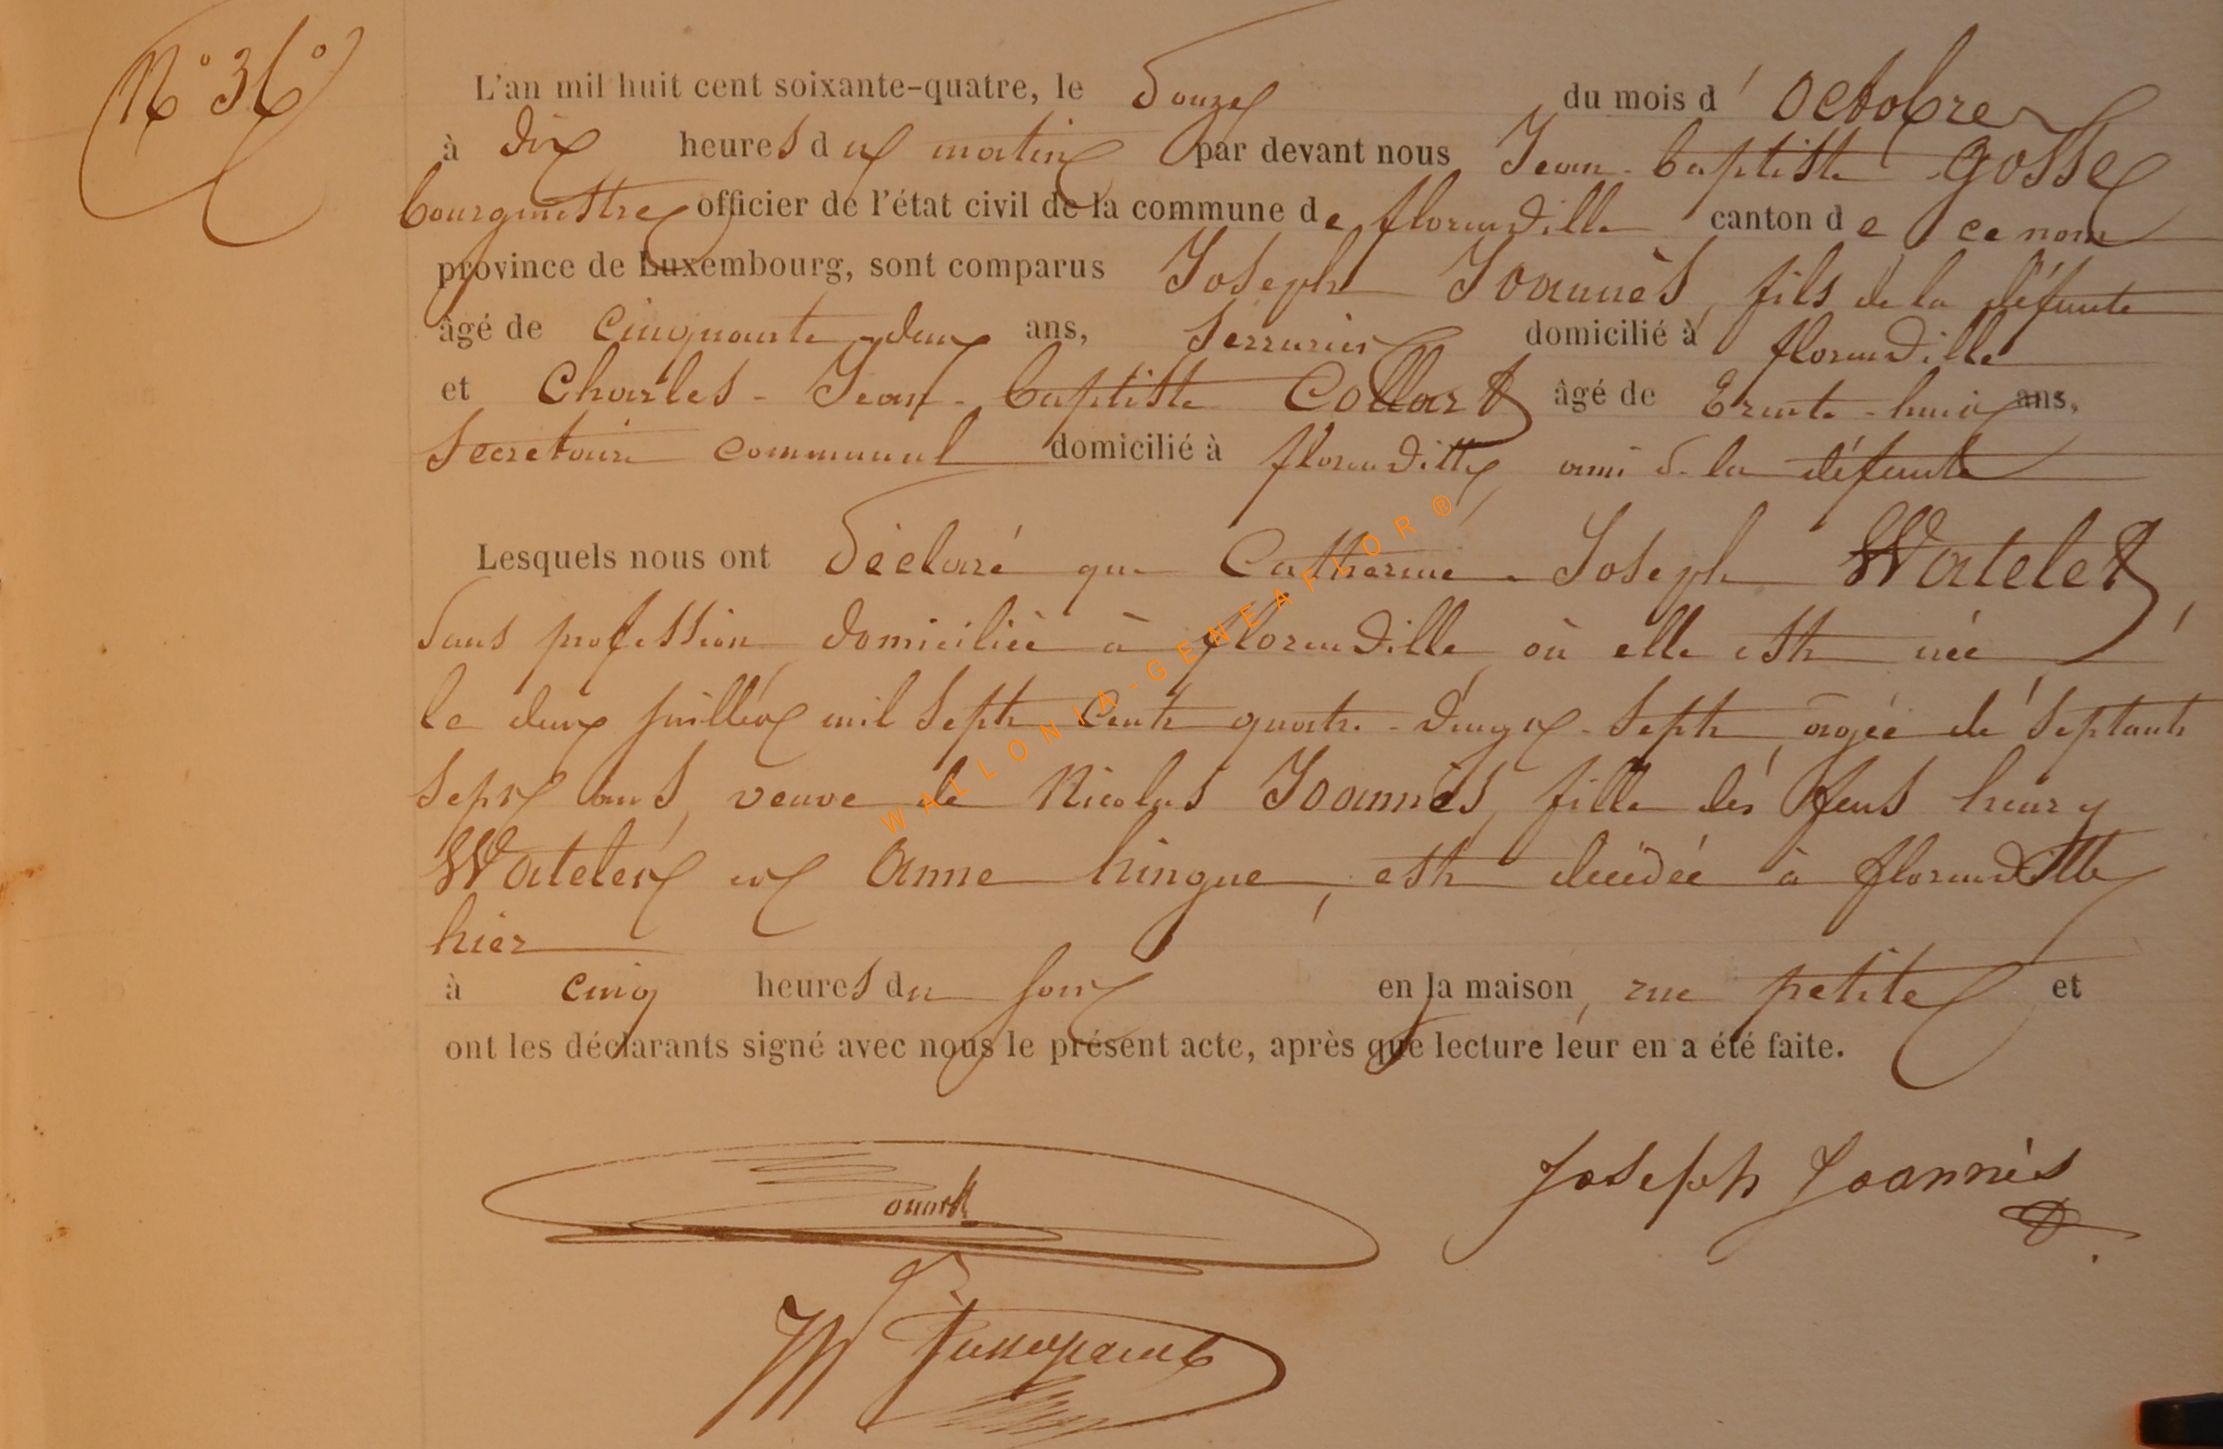 N° 36°
L'an mil huit cent soixante-quatre, le Douze du mois d' octobre
à dix heures du matin par devant nous Jean-baptiste Gosse
bourgmestre officier de l'état civil de la commune de florenville canton de ce nom
province de Luxembourg, sont comparus Joseph Joannès, fils de la défunte
âgé de cinquante-deux ans, Serrurier domicilié à florenville
et Charles-Jean-baptiste Collart âgé de Trente-huit ans,
Secretaire communal domicilié à florenville, ami de la défunte
Lesquels nous ont Déclaré que Catherine-Joseph Watelet,
Sans profession domiciliée à florenville, où elle est née
le deux juillet mil Sept Cent quatre-vingt-Sept, agée de Septante
Sept ans, veuve de Nicolas Joannès, fille des feus henry
Watelet et Anne hingue, est décédée à florenville
hier
à cinq heures du soir en la maison, rue petite et
ont les déclarants signé avec nous le présent acte, après que lecture leur en a été faite.
Joseph Joannès
WALLONIA-GENEAFLOR®